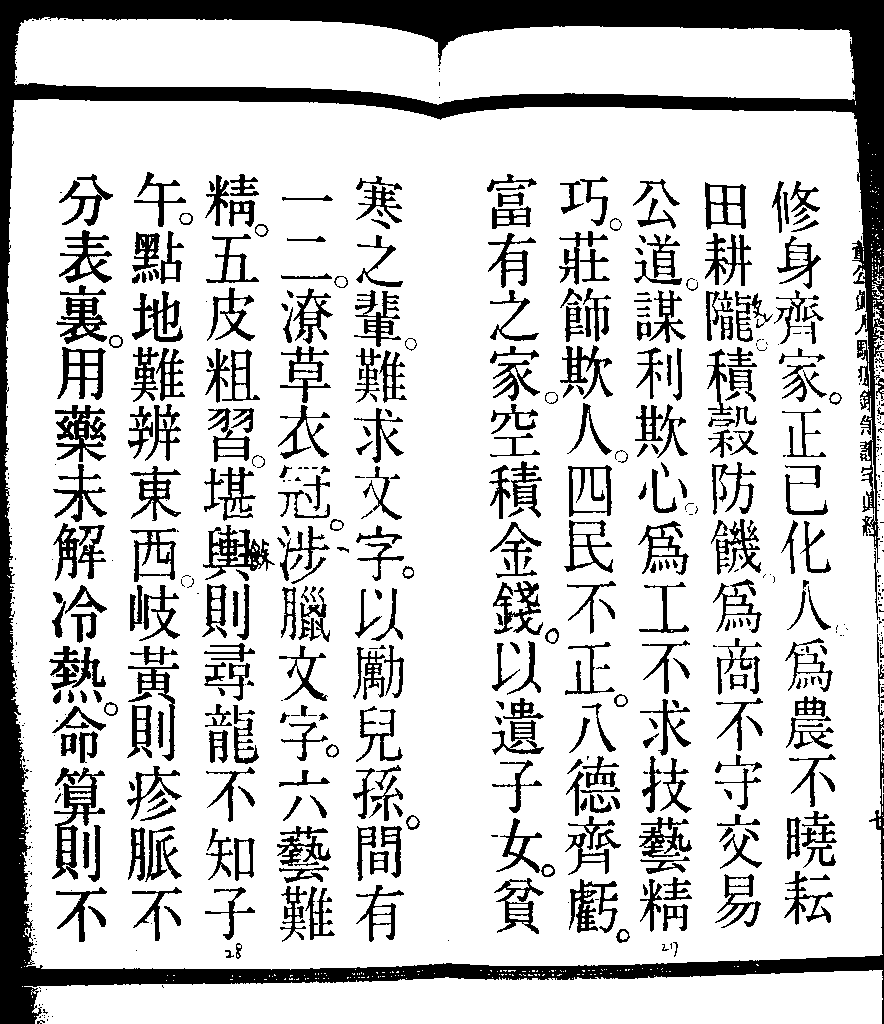 修身齊家。正己化人。爲農不曉耘
田耕隴。積穀防饑。爲商不守交易
公道。謀利欺心。爲工不求技藝精
巧。莊飾欺人。四民不正。八德齊虧。
富有之家。空積金錢。以遺子女。貧
27
寒之輩。難求文字。以勵兒孫。間有
一二。潦草衣冠。涉臘文字。六藝難
精。五皮粗習。堪輿則尋龍不知子
午。點地難辨東西。岐黃則疹脈不
分表裏。用藥未解冷熱。命算則不
28